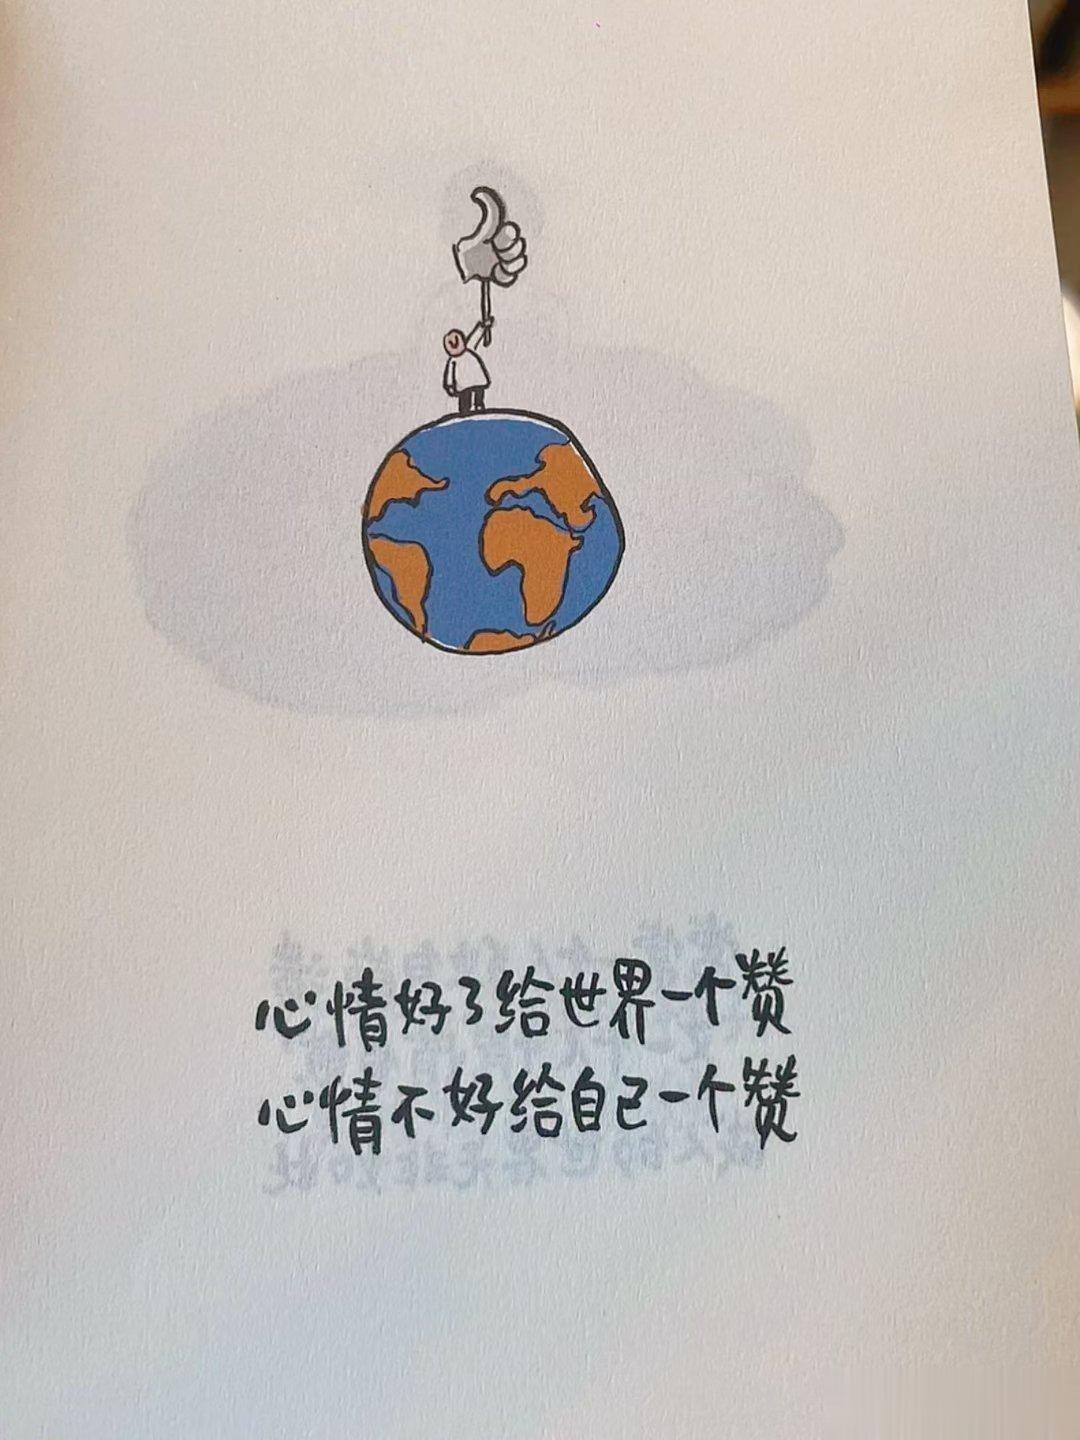 心情好了给世界一个赞
心情不好给自己一个赞